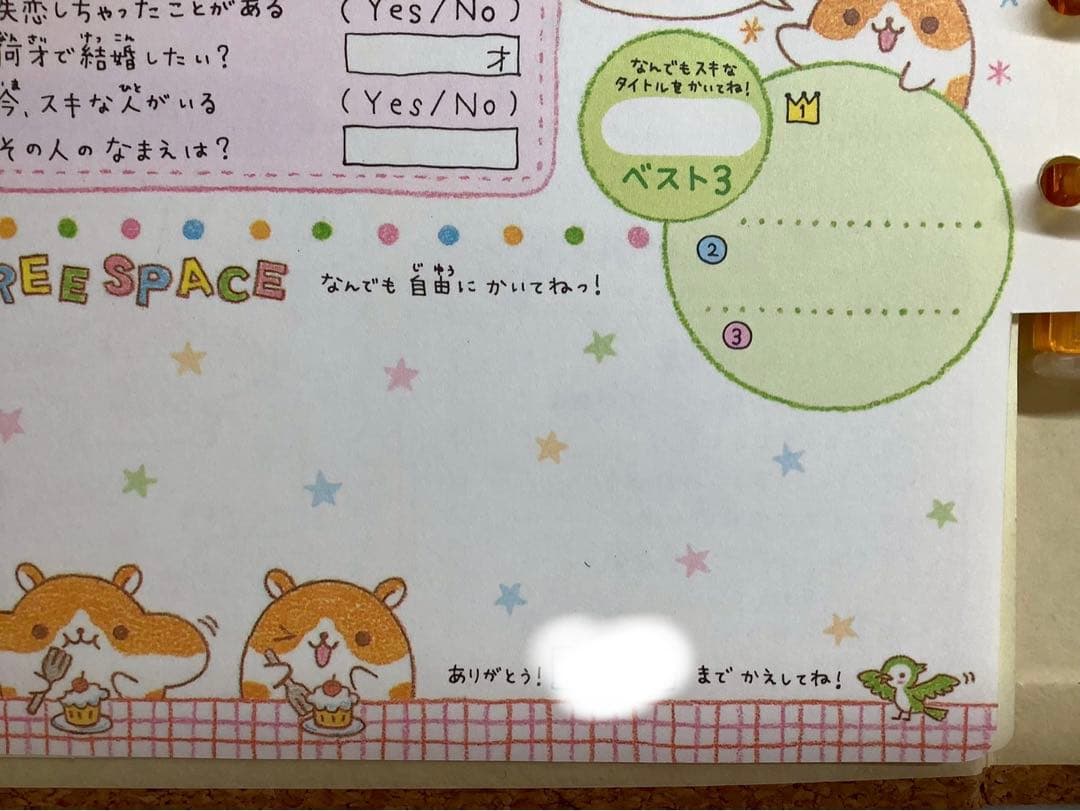 失恋しちゃったことがある (Yes/No)
何才で結婚したい? 才
今、スキな人がいる (Yes/No)
その人のなまえは?
なんでもスキな
タイトルをかいてね!
ベスト3
1
2
3
REE SPACE なんでも自由にかいてねっ!
ありがとう! までかえしてね!